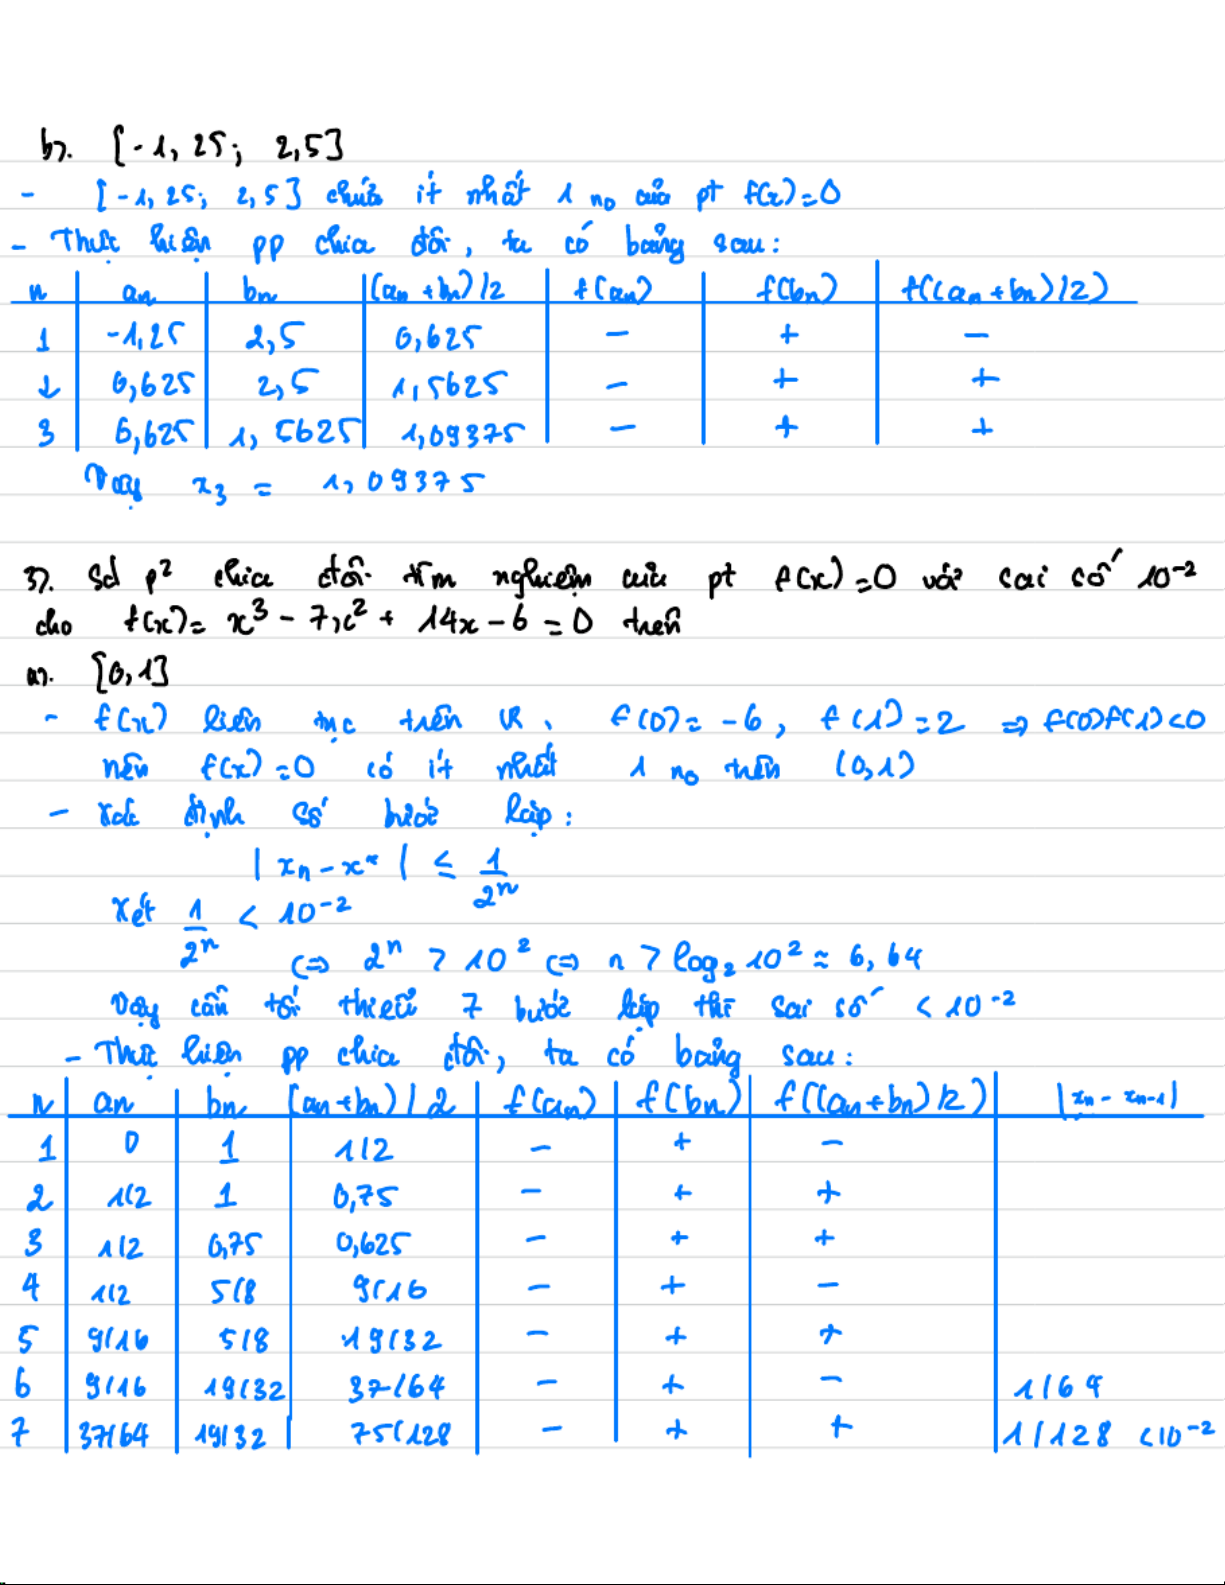 b). [-1,25; 2,5]
- [-1,25; 2,5] chứa ít nhất 1 no của pt f(x)=0
- Thực hiện pp chia đôi, ta có bảng sau:
n | an | bn | (an + bn)/2 | f(an) | f(bn) | f((an + bn)/2)
1 | -1,25 | 2,5 | 0,625 | - | + | -
2 | 0,625 | 2,5 | 1,5625 | - | + | +
3 | 0,625 | 1,5625 | 1,09375 | - | + | +
Vậy x3 = 1,09375
3). Sd p² chia đôi tìm nghiệm của pt f(x)=0 với sai số 10⁻²
cho f(x)= x³ - 7x² + 14x - 6 = 0 trên
a). [0,1]
- f(x) liên tục trên R, f(0)= -6, f(1)=2 => f(0)f(1)<0
nên f(x)=0 có ít nhất 1 no trên (0,1)
- Xác định số bước lặp:
|xn - x*| ≤ 1/2ⁿ
Xét 1/2ⁿ < 10⁻²
<=> 2ⁿ > 10² <=> n > log₂ 10² ≈ 6,64
Vậy cần tối thiểu 7 bước lặp thì sai số < 10⁻²
- Thực hiện pp chia đôi, ta có bảng sau:
n | an | bn | (an+bn)/2 | f(an) | f(bn) | f((an+bn)/2) | |xn - xn-1|
1 | 0 | 1 | 1/2 | - | + | -
2 | 1/2 | 1 | 0,75 | - | + | +
3 | 1/2 | 0,75 | 0,625 | - | + | +
4 | 1/2 | 5/8 | 9/16 | - | + | -
5 | 9/16 | 5/8 | 19/32 | - | + | +
6 | 9/16 | 19/32 | 37/64 | - | + | - | 1/64
7 | 37/64 | 19/32 | 75/128 | - | + | + | 1/128 <10⁻²